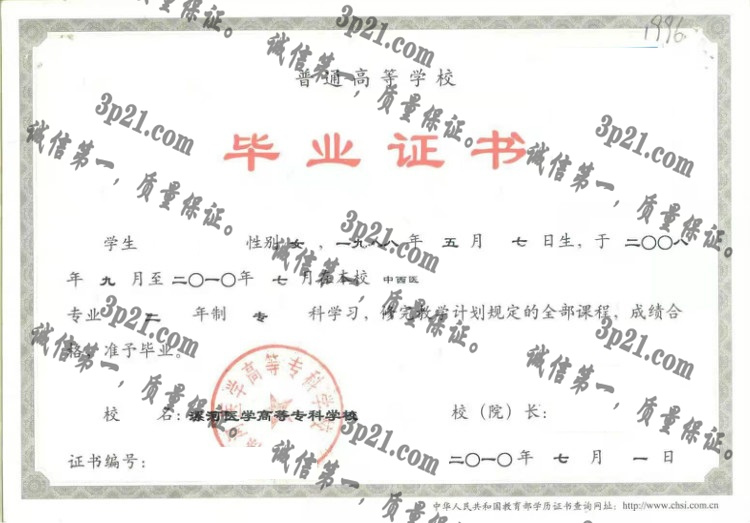 1996
普通高等学校
毕业证书
学生 性别 女 ，一九八八年 五 月 七 日生，于 二〇〇八
年 九 月至二〇一〇年 七 月在本校 中西医
专业 二 年制 专 科学习，修完教学计划规定的全部课程，成绩合
格，准予毕业。
校 名：漯河医学高等专科学校 校（院）长：
证书编号： 二〇一〇年 七 月 一 日
中华人民共和国教育部学历证书查询网址：http://www.chsi.com.cn
3p21.com
诚信第一，质量保证。
3p21.com
诚信第一，质量保证。
3p21.com
诚信第一，质量保证。
3p21.com
诚信第一，质量保证。
3p21.com
诚信第一，质量保证。
3p21.com
诚信第一，质量保证。
3p21.com
诚信第一，质量保证。